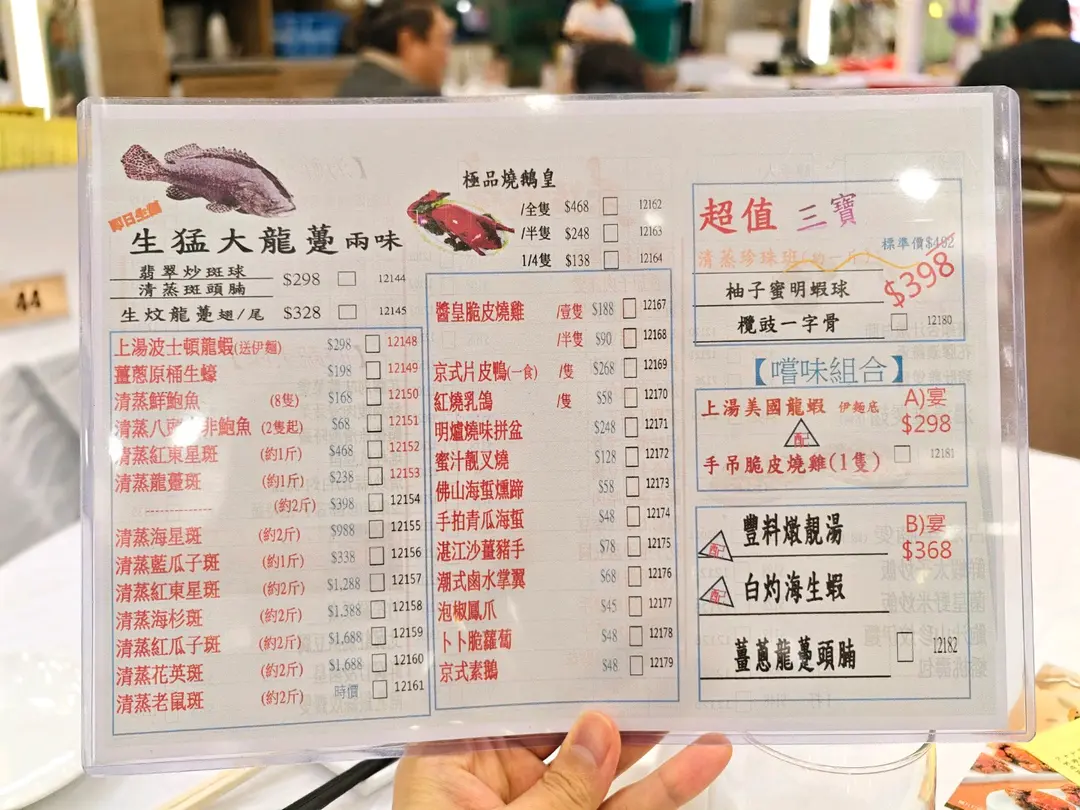 即日生劏
生猛大龍躉兩味
翡翠炒斑球
清蒸斑頭腩 $298 12144
生炆龍躉翅/尾 $328 12145
上湯波士頓龍蝦(送伊麵) $298 12148
薑蔥原桶生蠔 $198 12149
清蒸鮮鮑魚 (8隻) $168 12150
清蒸八頭 非鮑魚 (2隻起) $68 12151
清蒸紅東星斑 (約1斤) $468 12152
清蒸龍躉斑 (約1斤) $238 12153
-------------- (約2斤) $398 12154
清蒸海星斑 (約2斤) $988 12155
清蒸藍瓜子斑 (約1斤) $338 12156
清蒸紅東星斑 (約2斤) $1,288 12157
清蒸海杉斑 (約2斤) $1,388 12158
清蒸紅瓜子斑 (約2斤) $1,688 12159
清蒸花英斑 (約2斤) $1,688 12160
清蒸老鼠斑 (約2斤) 時價 12161
極品燒鵝皇
/全隻 $468 12162
/半隻 $248 12163
1/4隻 $138 12164
醬皇脆皮燒雞 /壹隻 $188 12167
/半隻 $90 12168
京式片皮鴨(一食) /隻 $268 12169
紅燒乳鴿 /隻 $58 12170
明爐燒味拼盆 $248 12171
蜜汁靚叉燒 $128 12172
佛山海蜇燻蹄 $58 12173
手拍青瓜海蜇 $48 12174
湛江沙薑豬手 $78 12175
潮式鹵水掌翼 $68 12176
泡椒鳳爪 $45 12177
卜卜脆蘿蔔 $48 12178
京式素鵝 $48 12179
超值 三寶
標準價$492
清蒸珍珠斑(約一斤)
$398
柚子蜜明蝦球
欖豉一字骨 12180
【嚐味組合】
上湯美國龍蝦 伊麵底 A)宴
$298
配
手吊脆皮燒雞(1隻) 12181
豐料燉靚湯 B)宴
配 $368
配 白灼海生蝦
薑蔥龍躉頭腩 12182
44